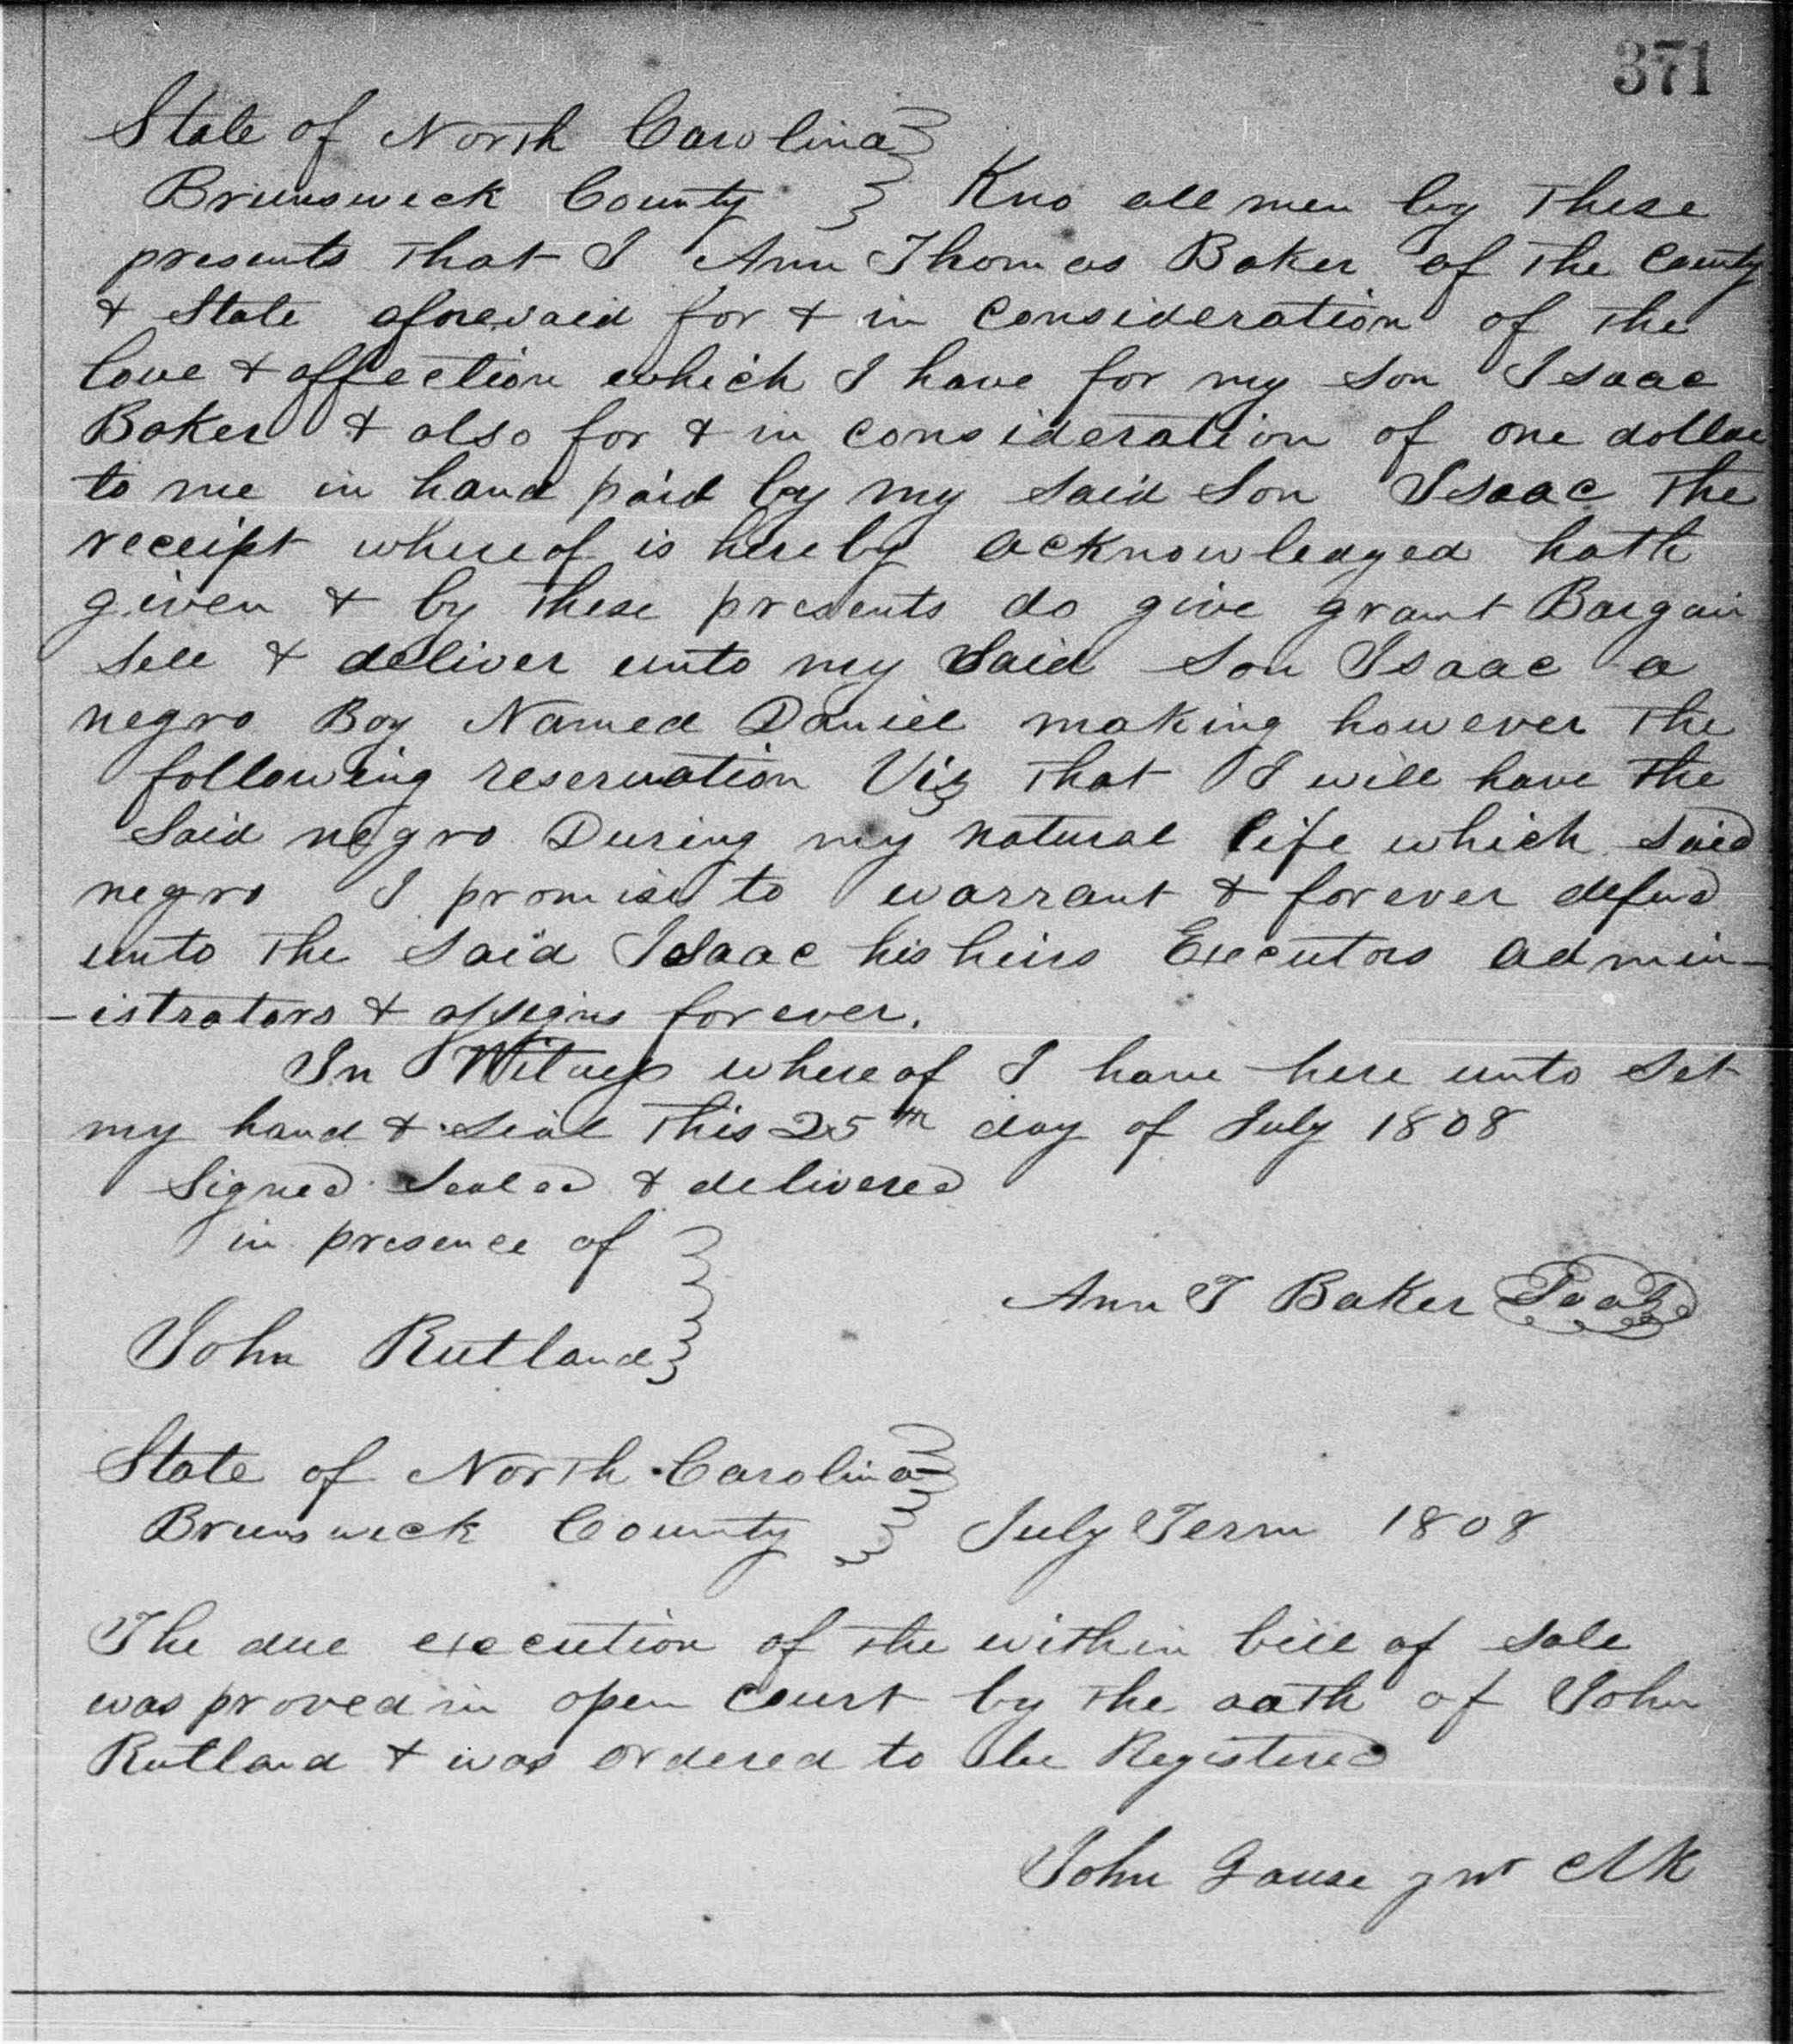 371
State of North Carolina
Brunsweck County } Kno all men by these
presents that I Ann Thomas Baker of the County
& State aforesaid for & in Consideration of the
love & affection which I have for my son Isaac
Baker & also for & in consideration of one dollar
to me in hand paid by my said Son Isaac the
receipt whereof is hereby acknowledged hath
given & by these presents do give grant Bargain
Sell & deliver unto my Said Son Isaac a
negro Boy Named Daniel making however the
following reservation Viz that I will have the
Said negro During my natural life which said
negro I promise to warrant & forever defend
unto the Said Isaac his heirs Executors admin-
-istrators & assigns forever.
In Witness whereof I have here unto Set
my hand & Seal this 25th day of July 1808
Signed Sealed & delivered
in presence of
Ann T Baker Seal
John Rutland
State of North Carolina
Brunsweck County } July Term 1808
The due execution of the within bill of Sale
was proved in open Court by the oath of John
Rutland & was ordered to be Registered
John Gause Jnr Clk